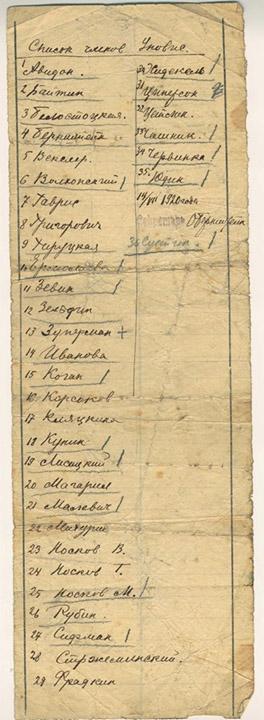 Список членов Уновис.
1 Авидон.
2 Байтин
3 Белостоцкая.
4 Бернштейн
5 Векслер.
6 Волконский /
7 Гаврис
8 Григорович
9 Гирутская
10 Ермолаева /
11 Зевин /
12 Зельдин
13 Зуперман +
14 Иванова
15 Коган /
16 Корсаков
17 Кляцкина
18 Кунин /
19 Лисицкий /
20 Магарил
21 Малевич /
22
23 Носков В.
24 Носков Г.
25 Носков М. /
26 Рубин.
27 Сидман /
28 Стржеминский.
29 Фрадкин
30 Хидекель /
31 Циперсон
32
33 Чашник. /
34 Червинка /
35 Юдин /
14/VII 1920 года
Секретарь О Бернштейн
36 Суетин. /